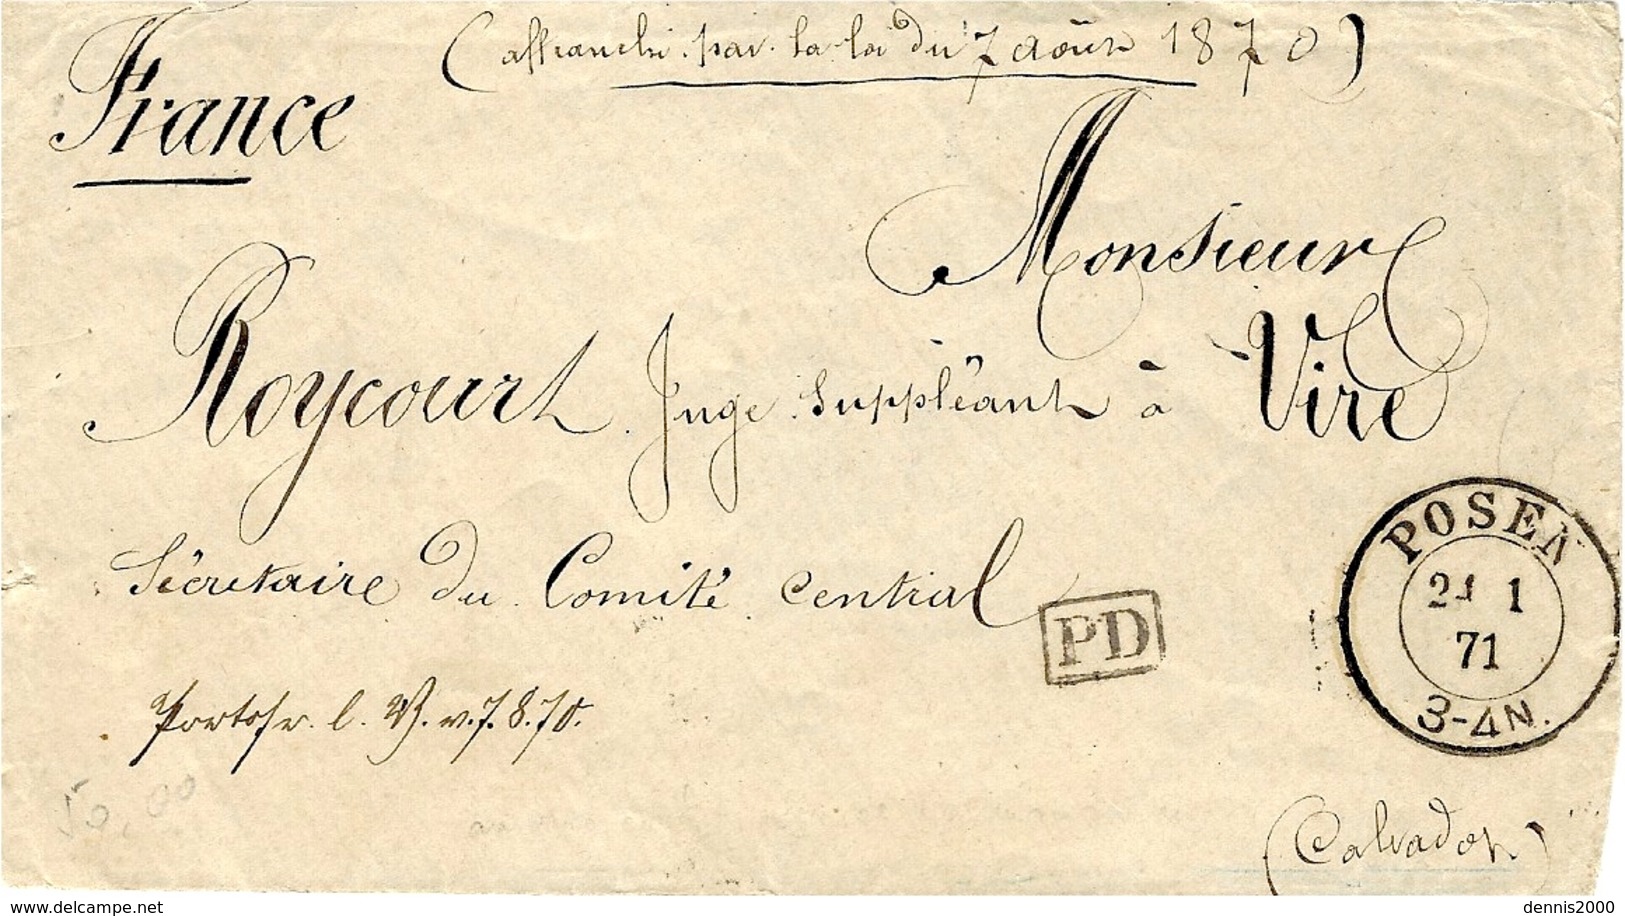 (affranchi par la loi du 7 août 1870)
France
Monsieur
Roycourt Juge Suppléant à Vire
Sécretaire du Comité Central
PD
POSEN
21 1
71
3-4N.
Portofr. l. V. v. 7.8.70.
50,00
(Calvados)
www.delcampe.net
dennis2000